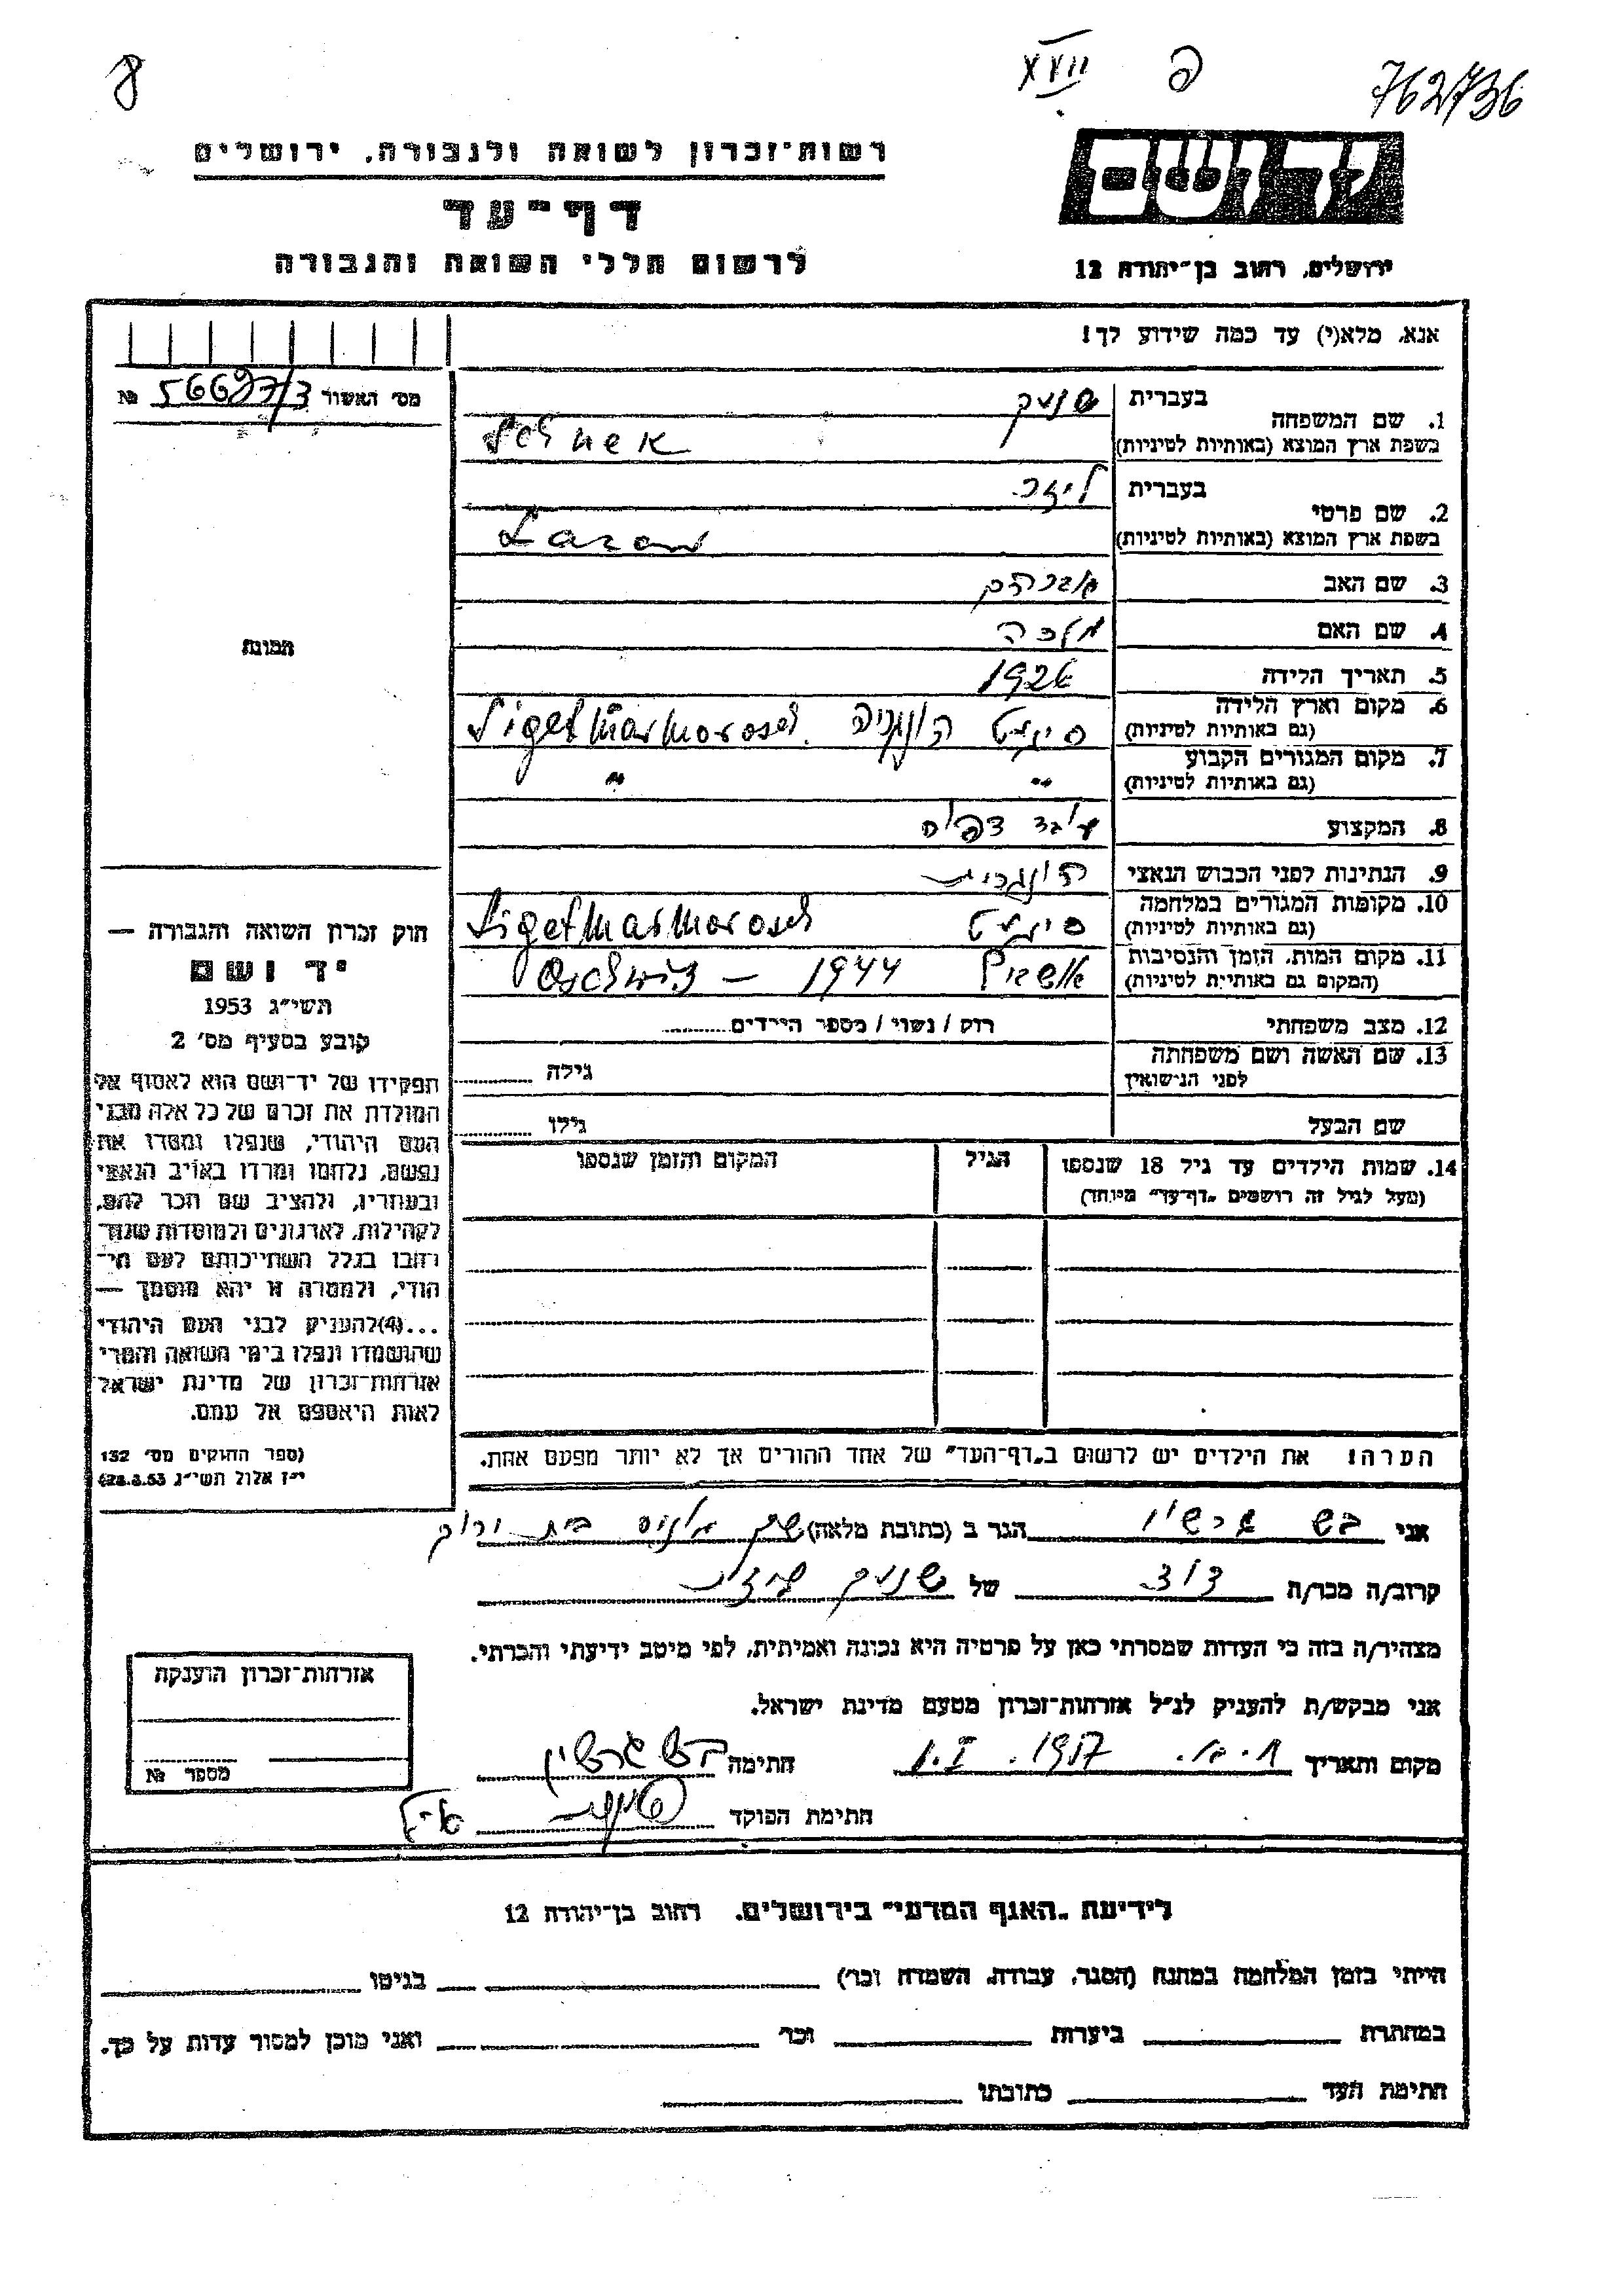 8
XVII
762736
רשות־זכרון לשואה ולגבורה, ירושלים
יד ושם
דף־עד
לרשום חללי השואה והגבורה
ירושלים, רחוב בן־יהודה 12
אנא, מלא(י) עד כמה שידוע לך!
מס' האשור 56697/3 №
בעברית
1. שם המשפחה
בשפת ארץ המוצא (באותיות לטיניות)
בעברית
2. שם פרטי
בשפת ארץ המוצא (באותיות לטיניות) Lazar
3. שם האב אברהם
4. שם האם מלכה
5. תאריך הלידה 1926
6. מקום וארץ הלידה סיגעט הונגריה Sigetmarmorosch
(גם באותיות לטיניות)
7. מקום המגורים הקבוע " "
(גם באותיות לטיניות)
8. המקצוע עובד דפוס
9. הנתינות לפני הכבוש הנאצי הונגרית
10. מקומות המגורים במלחמה סיגעט Sigetmarmorosch
(גם באותיות לטיניות)
11. מקום המות, הזמן והנסיבות 1944 —
(המקום גם באותיית לטיניות)
12. מצב משפחתי רוק / נשוי / מספר הילדים
13. שם האשה ושם משפחתה גילה
לפני הנישואין
שם הבעל גילו
14. שמות הילדים עד גיל 18 שנספו הגיל המקום והזמן שנספו
(מעל לגיל זה רושמים "דף־עד" מיוחד)
הערה: את הילדים יש לרשום ב"דף־העד" של אחד ההורים אך לא יותר מפעם אחת.
תמונה
חוק זכרון השואה והגבורה —
יד ושם
תשי"ג 1953
קובע בסעיף מס' 2
תפקידו של יד־ושם הוא לאסוף אל
המולדת את זכרם של כל אלה מבני
העם היהודי, שנפלו ומסרו את
נפשם, נלחמו ומרדו באויב הנאצי
ובעוזריו, ולהציב שם וזכר להם,
לקהילות, לארגונים ולמוסדות שנח־
רבו בגלל השתייכותם לעם הי־
הודי, ולמטרה זו יהא מוסמך —
...(4)להעניק לבני העם היהודי
שהושמדו ונפלו בימי השואה והמרי
אזרחות־זכרון של מדינת ישראל
לאות היאספם אל עמם.
(ספר החוקים מס' 132
י"ז אלול תשי"ג 28.8.53)
אני הגר ב (כתובת מלאה)
קרוב/ה מכר/ה דוד של
מצהיר/ה בזה כי העדות שמסרתי כאן על פרטיה היא נכונה ואמיתית, לפי מיטב ידיעתי והכרתי.
אני מבקש/ת להעניק לנ"ל אזרחות־זכרון מטעם מדינת ישראל.
מקום ותאריך חתימה
חתימת הפוקד
אזרחות־זכרון הוענקה
מספר №
לידיעת "האגף המדעי" בירושלים, רחוב בן־יהודה 12
הייתי בזמן המלחמה במחנה (הסגר, עבודה, השמדה וכו') בגיטו
במחתרת ביערות וכו' ואני מוכן למסור עדות על כך.
חתימת העד כתובתו